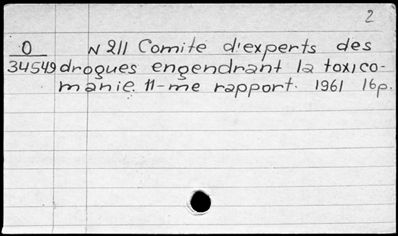 2
O N 211 Comite d'experts des
34549 drogues engendrant la toxico-
manie. 11-me rapport. 1961 16p.